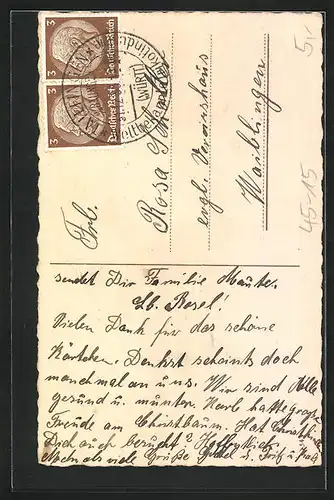 3
3
Deutsches Reich
Deutsches Reich
5,-
Frl.
Rosa
evgl. Vereinshaus
Waiblingen
45-15
sendet Dir Familie
Lb. Rosel!
Vielen Dank für das schöne
Kärtchen. Denkst scheints doch
manchmal an uns. Wir sind Alle
gesund u. munter. Karb hatte große
Freude am Christbaum. Hat
Dich auch besucht?
als viele Grüße u. Fritz u.